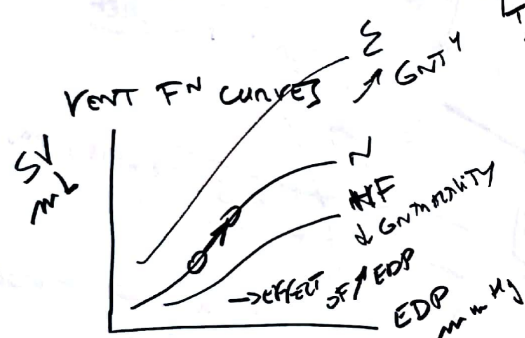 VENT FN CURVES
SV
mL
Σ
↗ GNTY
N
HF
↓ GNTMALITY
→ EFFECT OF ↑ EDP
EDP
mm Hg